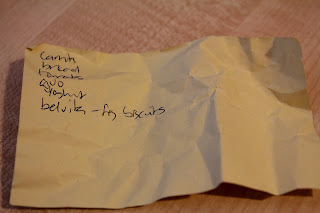 Carrots
bread
tomatos
avo
yoghurt
belvita - fig biscuits